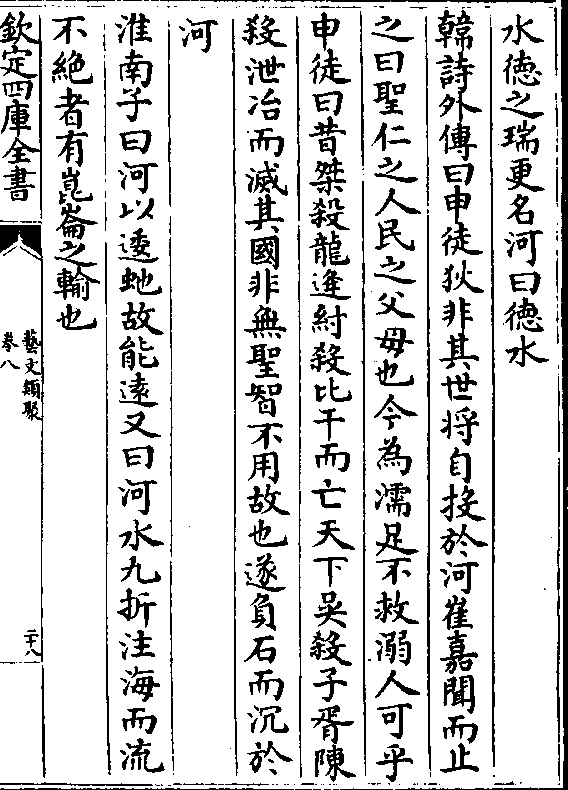 水德之瑞更名河曰德水
韓詩外傳曰申徒狄非其世将自投於河崔嘉聞而止
之曰聖仁之人民之父母也今為濡足不救溺人可乎
申徒曰昔桀殺龍逢紂殺比干而亡天下吳殺子胥陳
殺泄冶而滅其國非無聖智不用故也遂負石而沉於
河
淮南子曰河以逶虵故能逺又曰河水九折注海而流
不絶者有崑崙之輸也
欽定四庫全書
藝文類聚
卷八
二十八